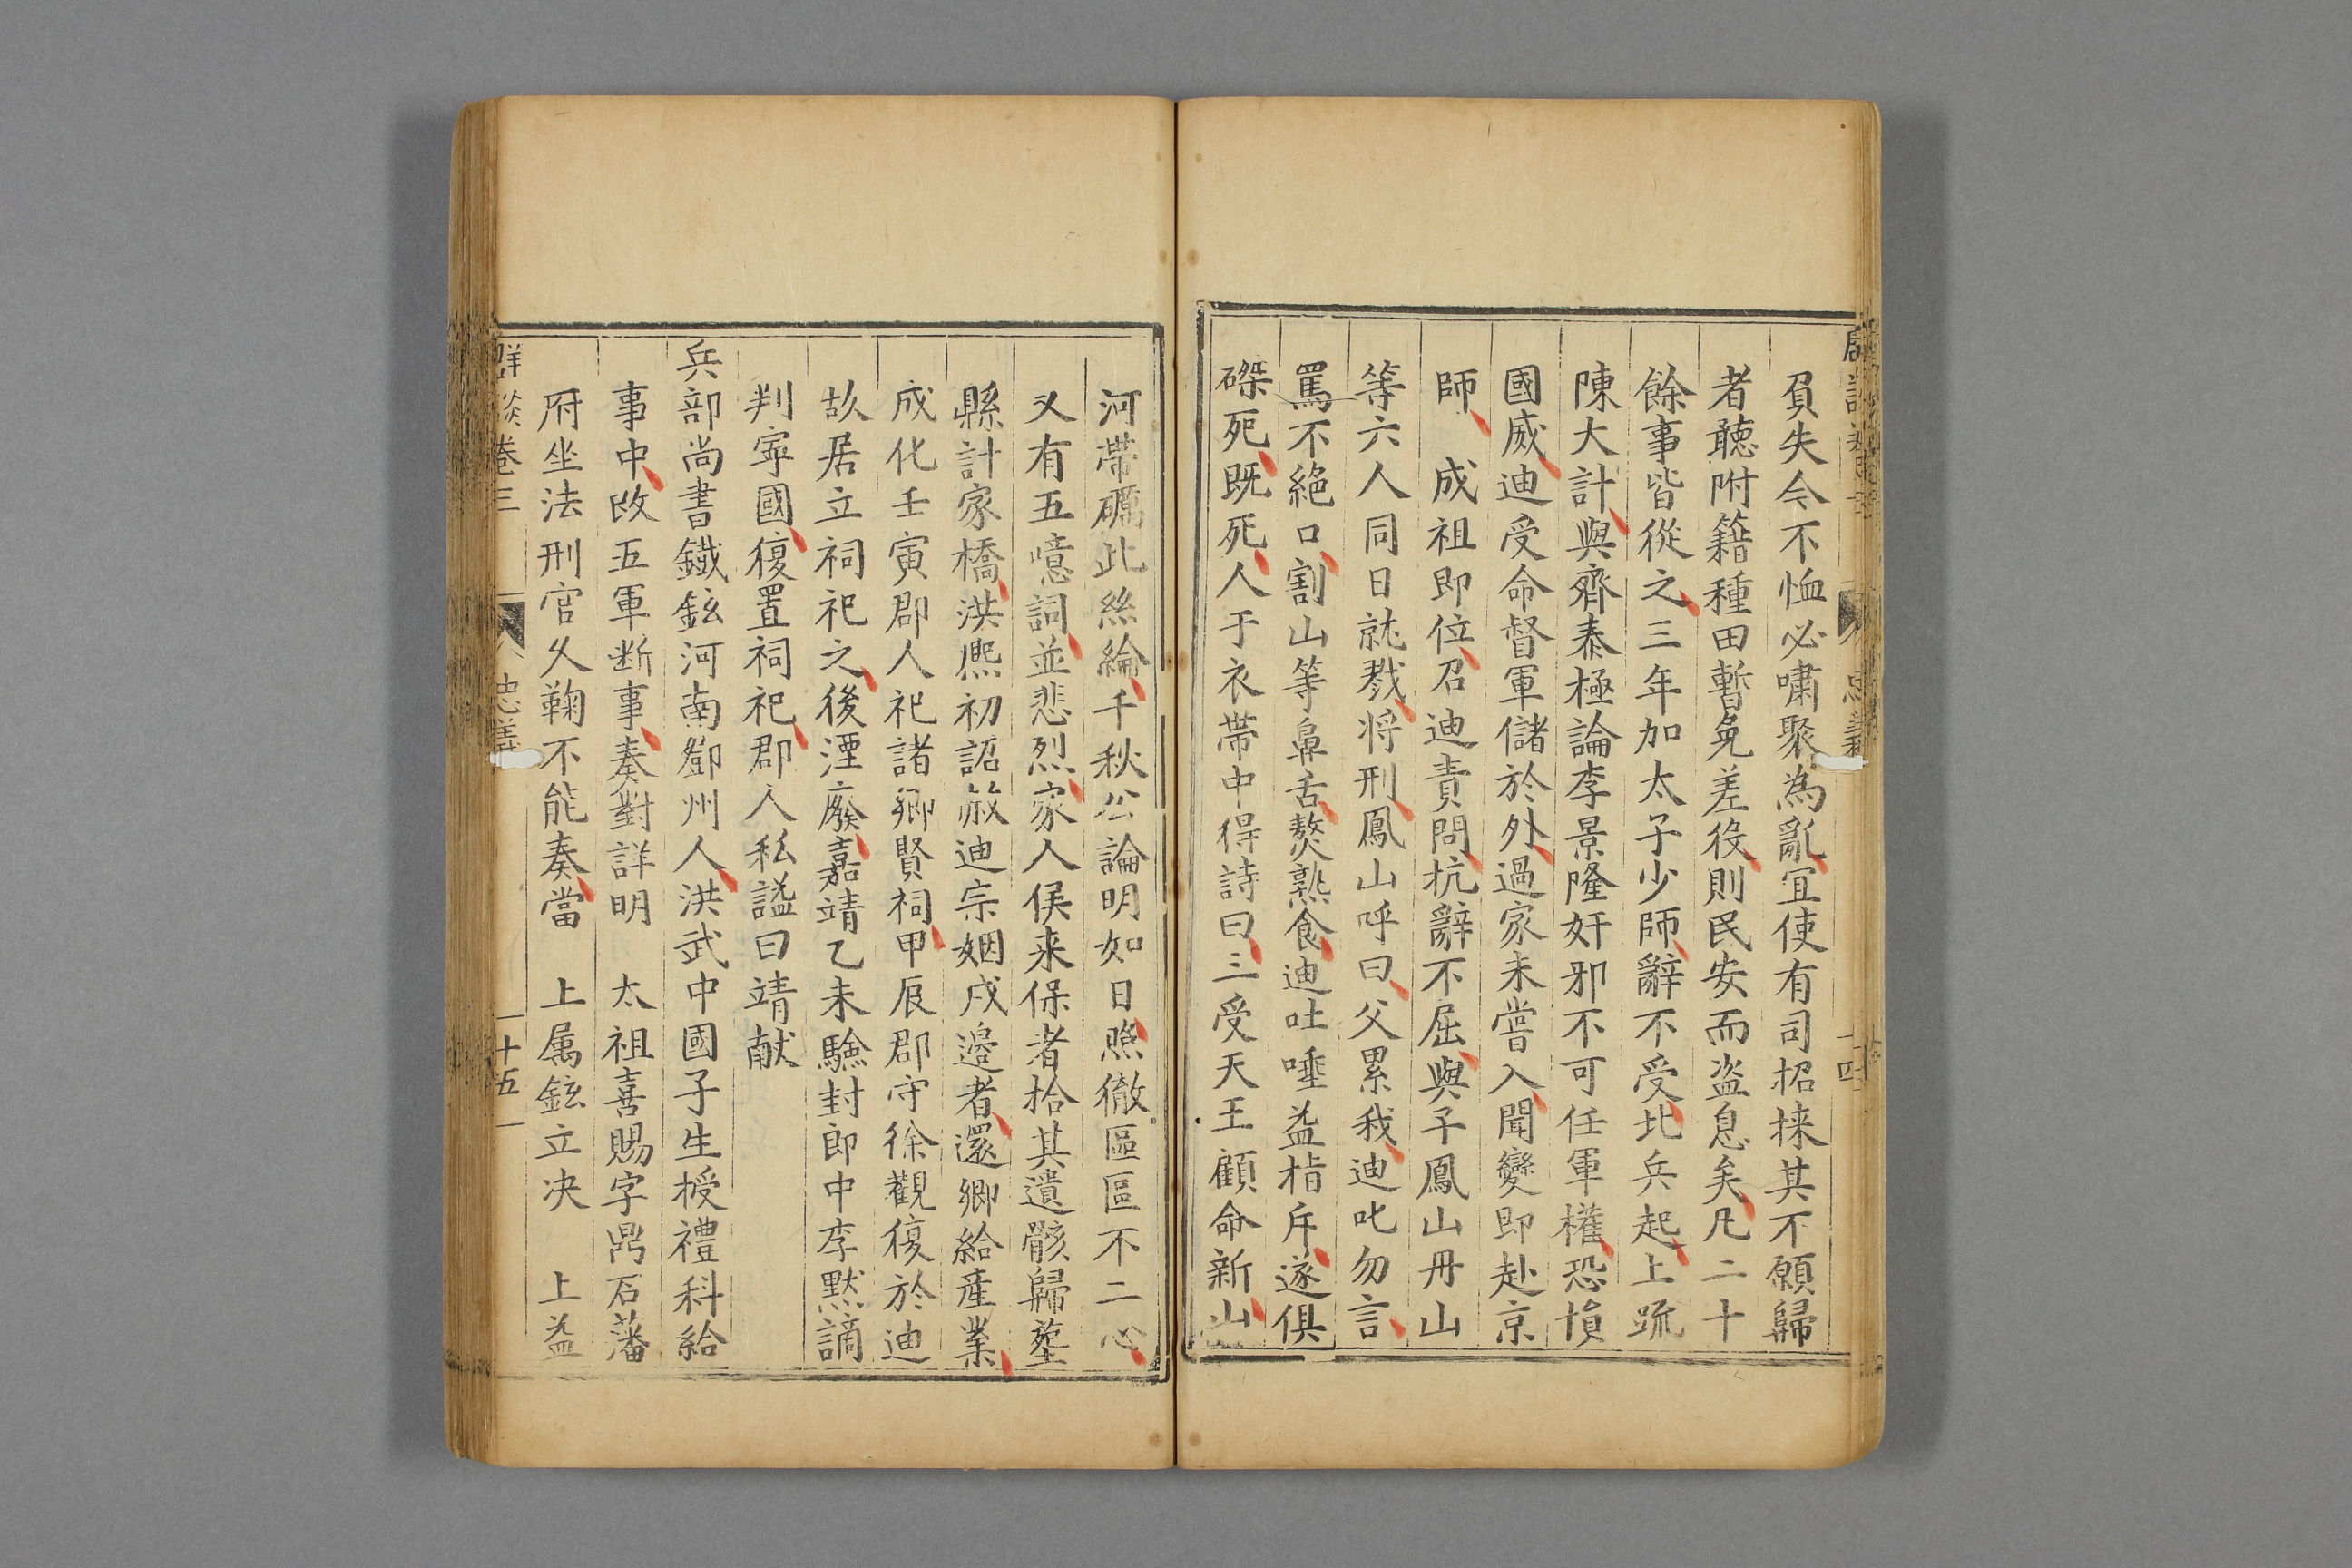 負失今不恤必嘯聚為亂宜使有司招撫其不願歸
者聽附籍種田暫免差役則民安而盗息矣凡二十
餘事皆從之三年加太子少師辭不受北兵起上疏
陳大計與齊泰極論李景隆奸邪不可任軍權恐損
國威迪受命督軍儲於外過家未嘗入聞變即赴京
師　成祖即位召迪責問抗辭不屈與子鳳山丹山
等六人同日就戮将刑鳳山呼曰父累我迪叱勿言
罵不絕口割山等鼻舌熬熟食迪吐唾益指斥遂俱
磔死既死人于衣帶中得詩曰三受天王顧命新山
河帶礪此絲綸千秋公論明如日照徹區區不二心
又有五噫詞並悲烈家人侯来保者拾其遺骸歸塟
縣計家橋洪熈初詔赦迪宗姻戍邉者還鄉給産業
成化壬寅郡人祀諸鄉賢祠甲辰郡守徐觀復於迪
故居立祠祀之後湮廢嘉靖乙未驗封郎中李默謫
判寧國復置祠祀郡人私謚曰靖献
兵部尚書鐵鉉河南鄧州人洪武中國子生授禮科給
事中改五軍断事奏對詳明　太祖喜賜字鼎石藩
府坐法刑官久鞠不能奏當　上属鉉立决　上益
群談卷三　忠義　十五